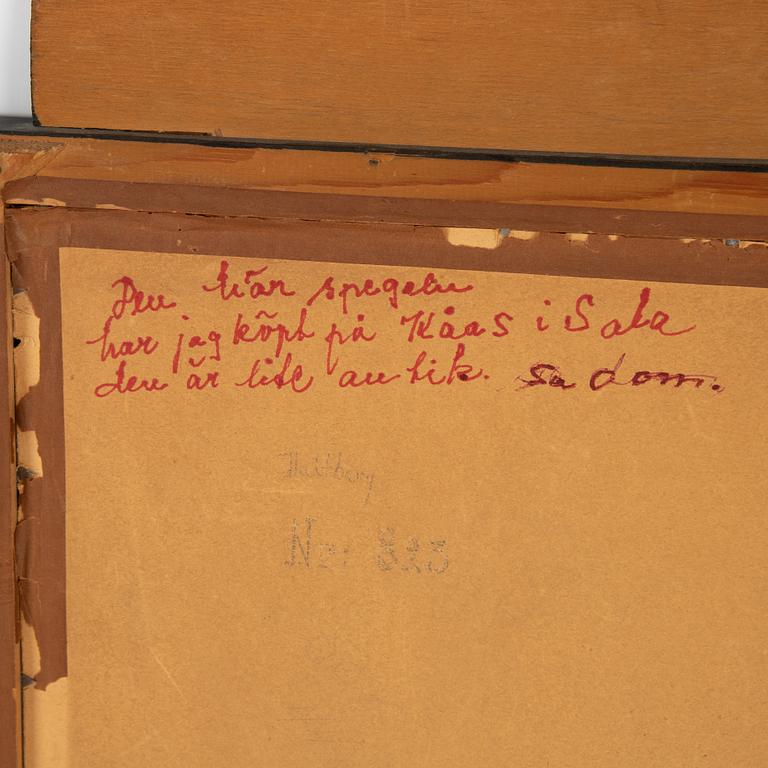 Den här spegeln
har jag köpt på Kåas i Sala
den är lite antik. Sa dom.
Nr: 823